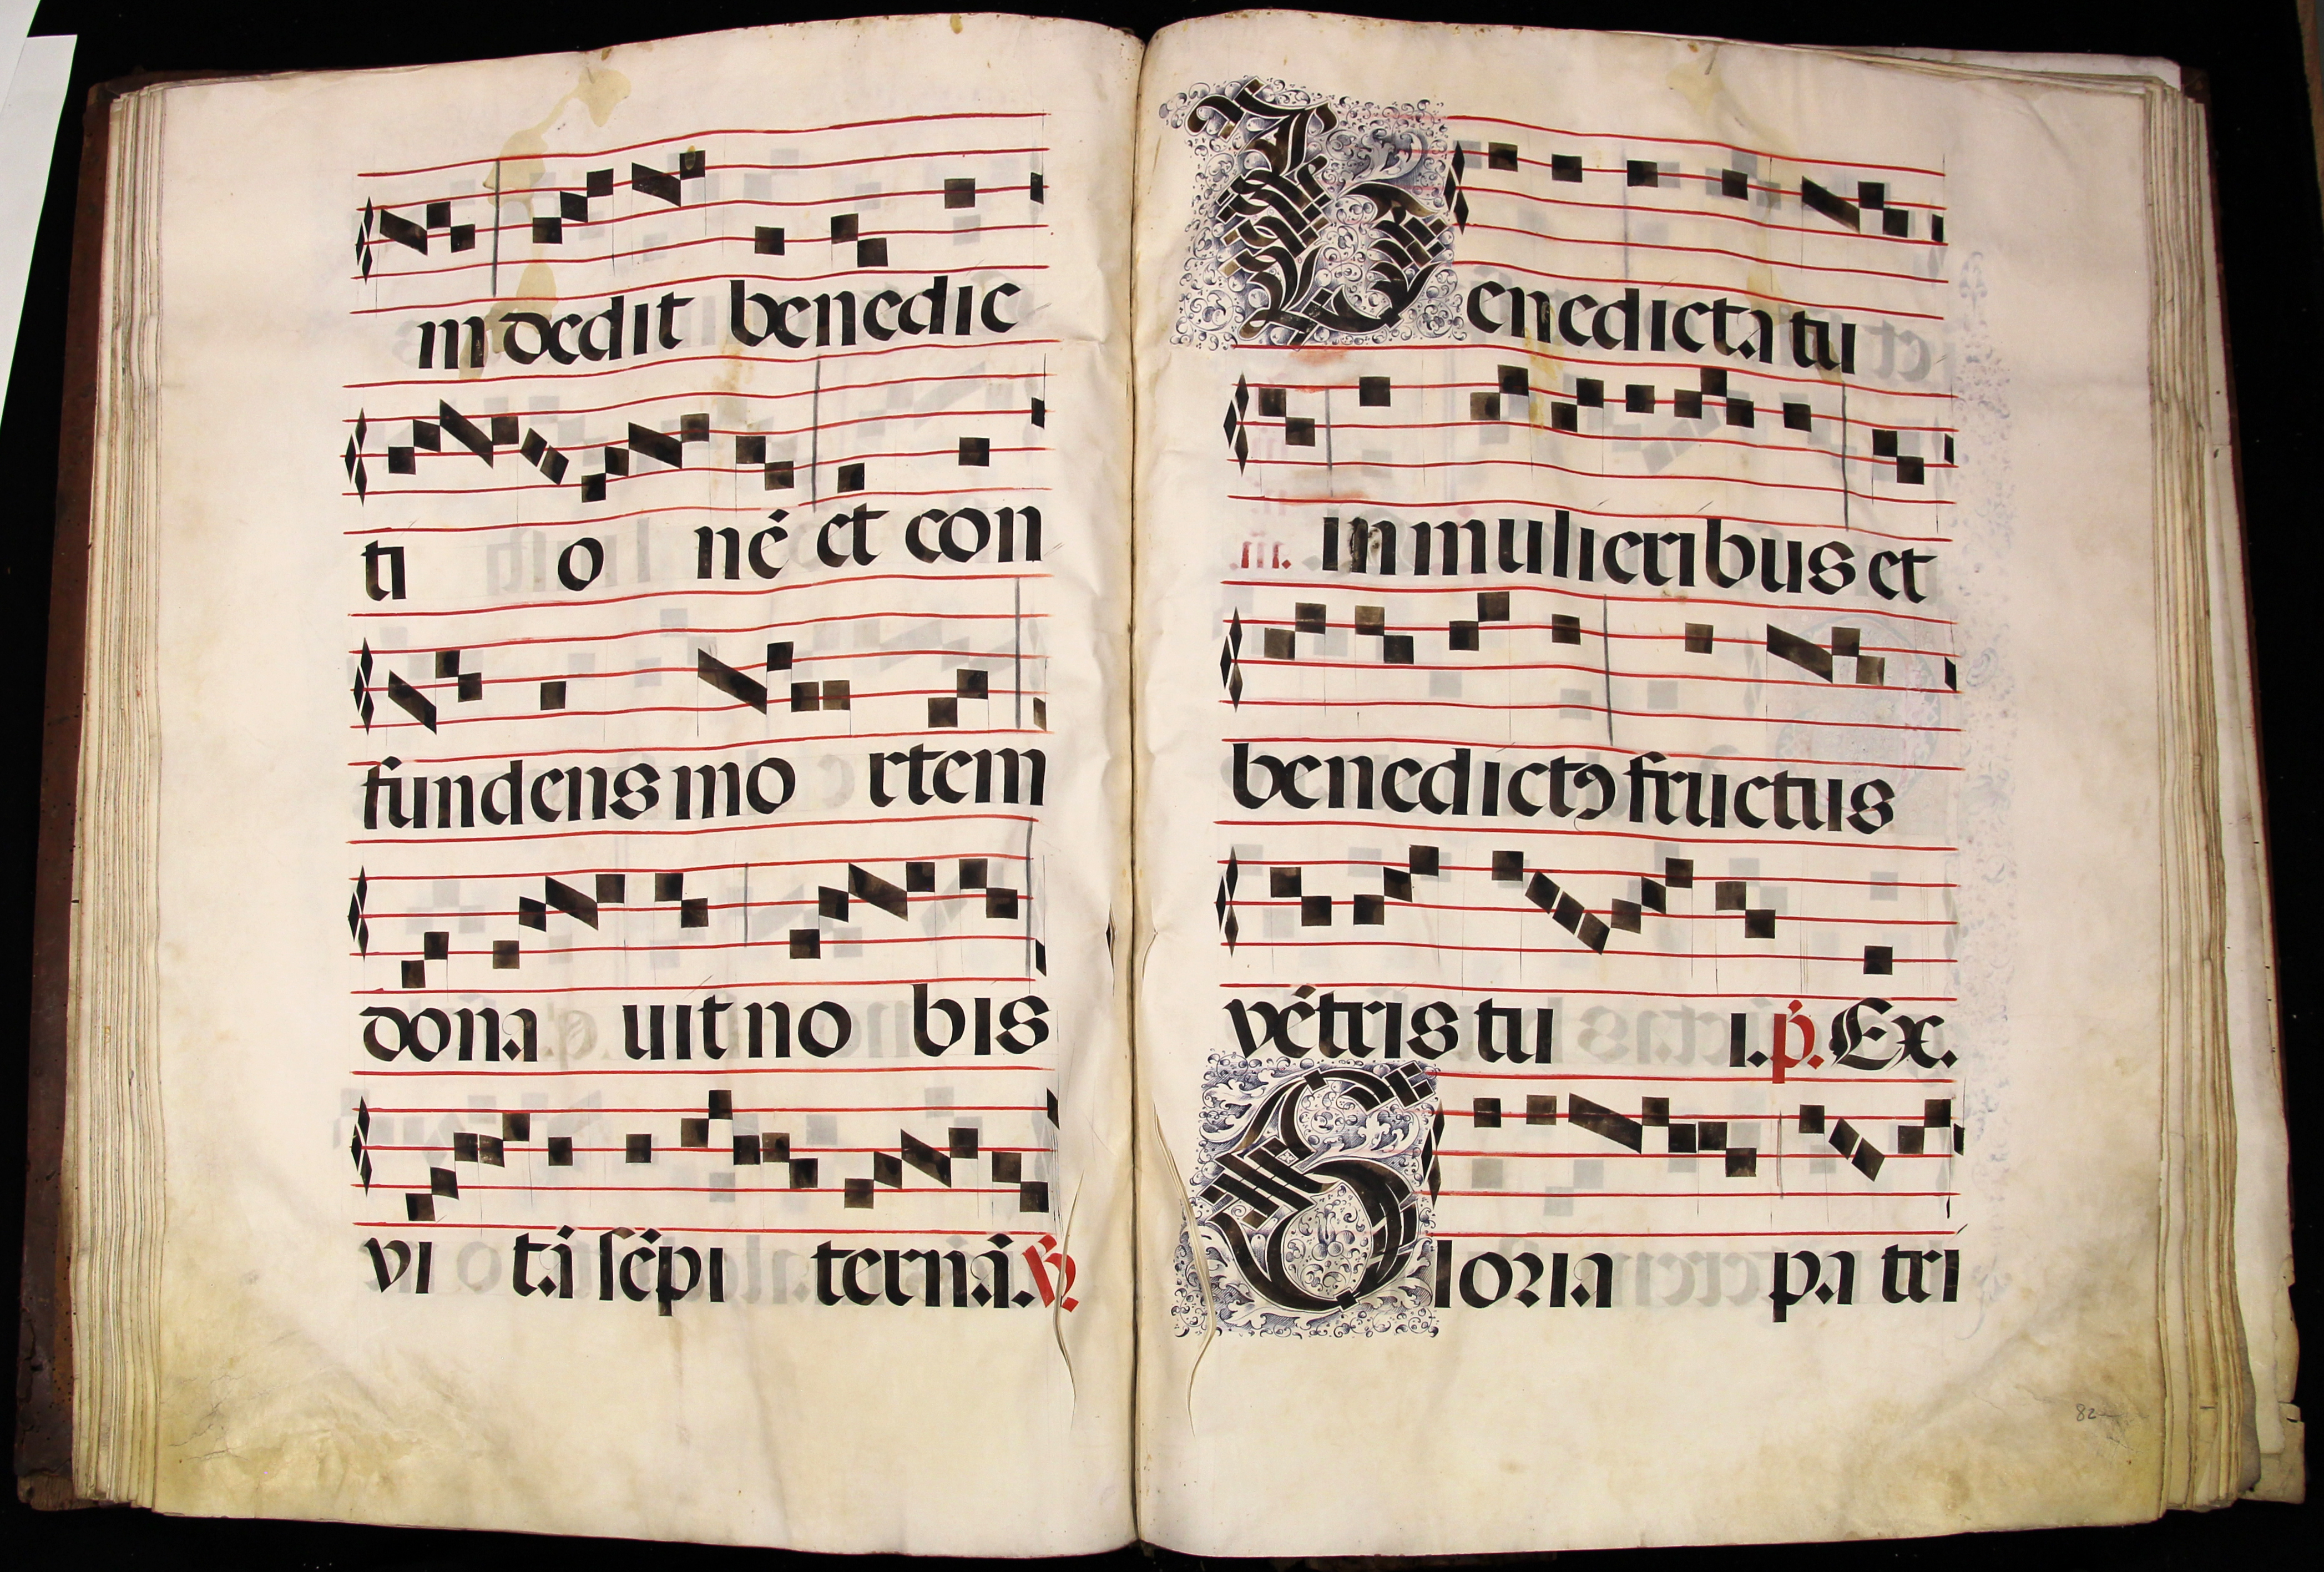 m dedit benedic
ti o nē et con
fundens mo rtem
dona uit no bis
vi tā sēpi ternā. ℟.
Benedicta tu
in mulieribus et
benedictꝰ fructus
vētris tu i. p̄. Ex.
Gloria pa tri
82